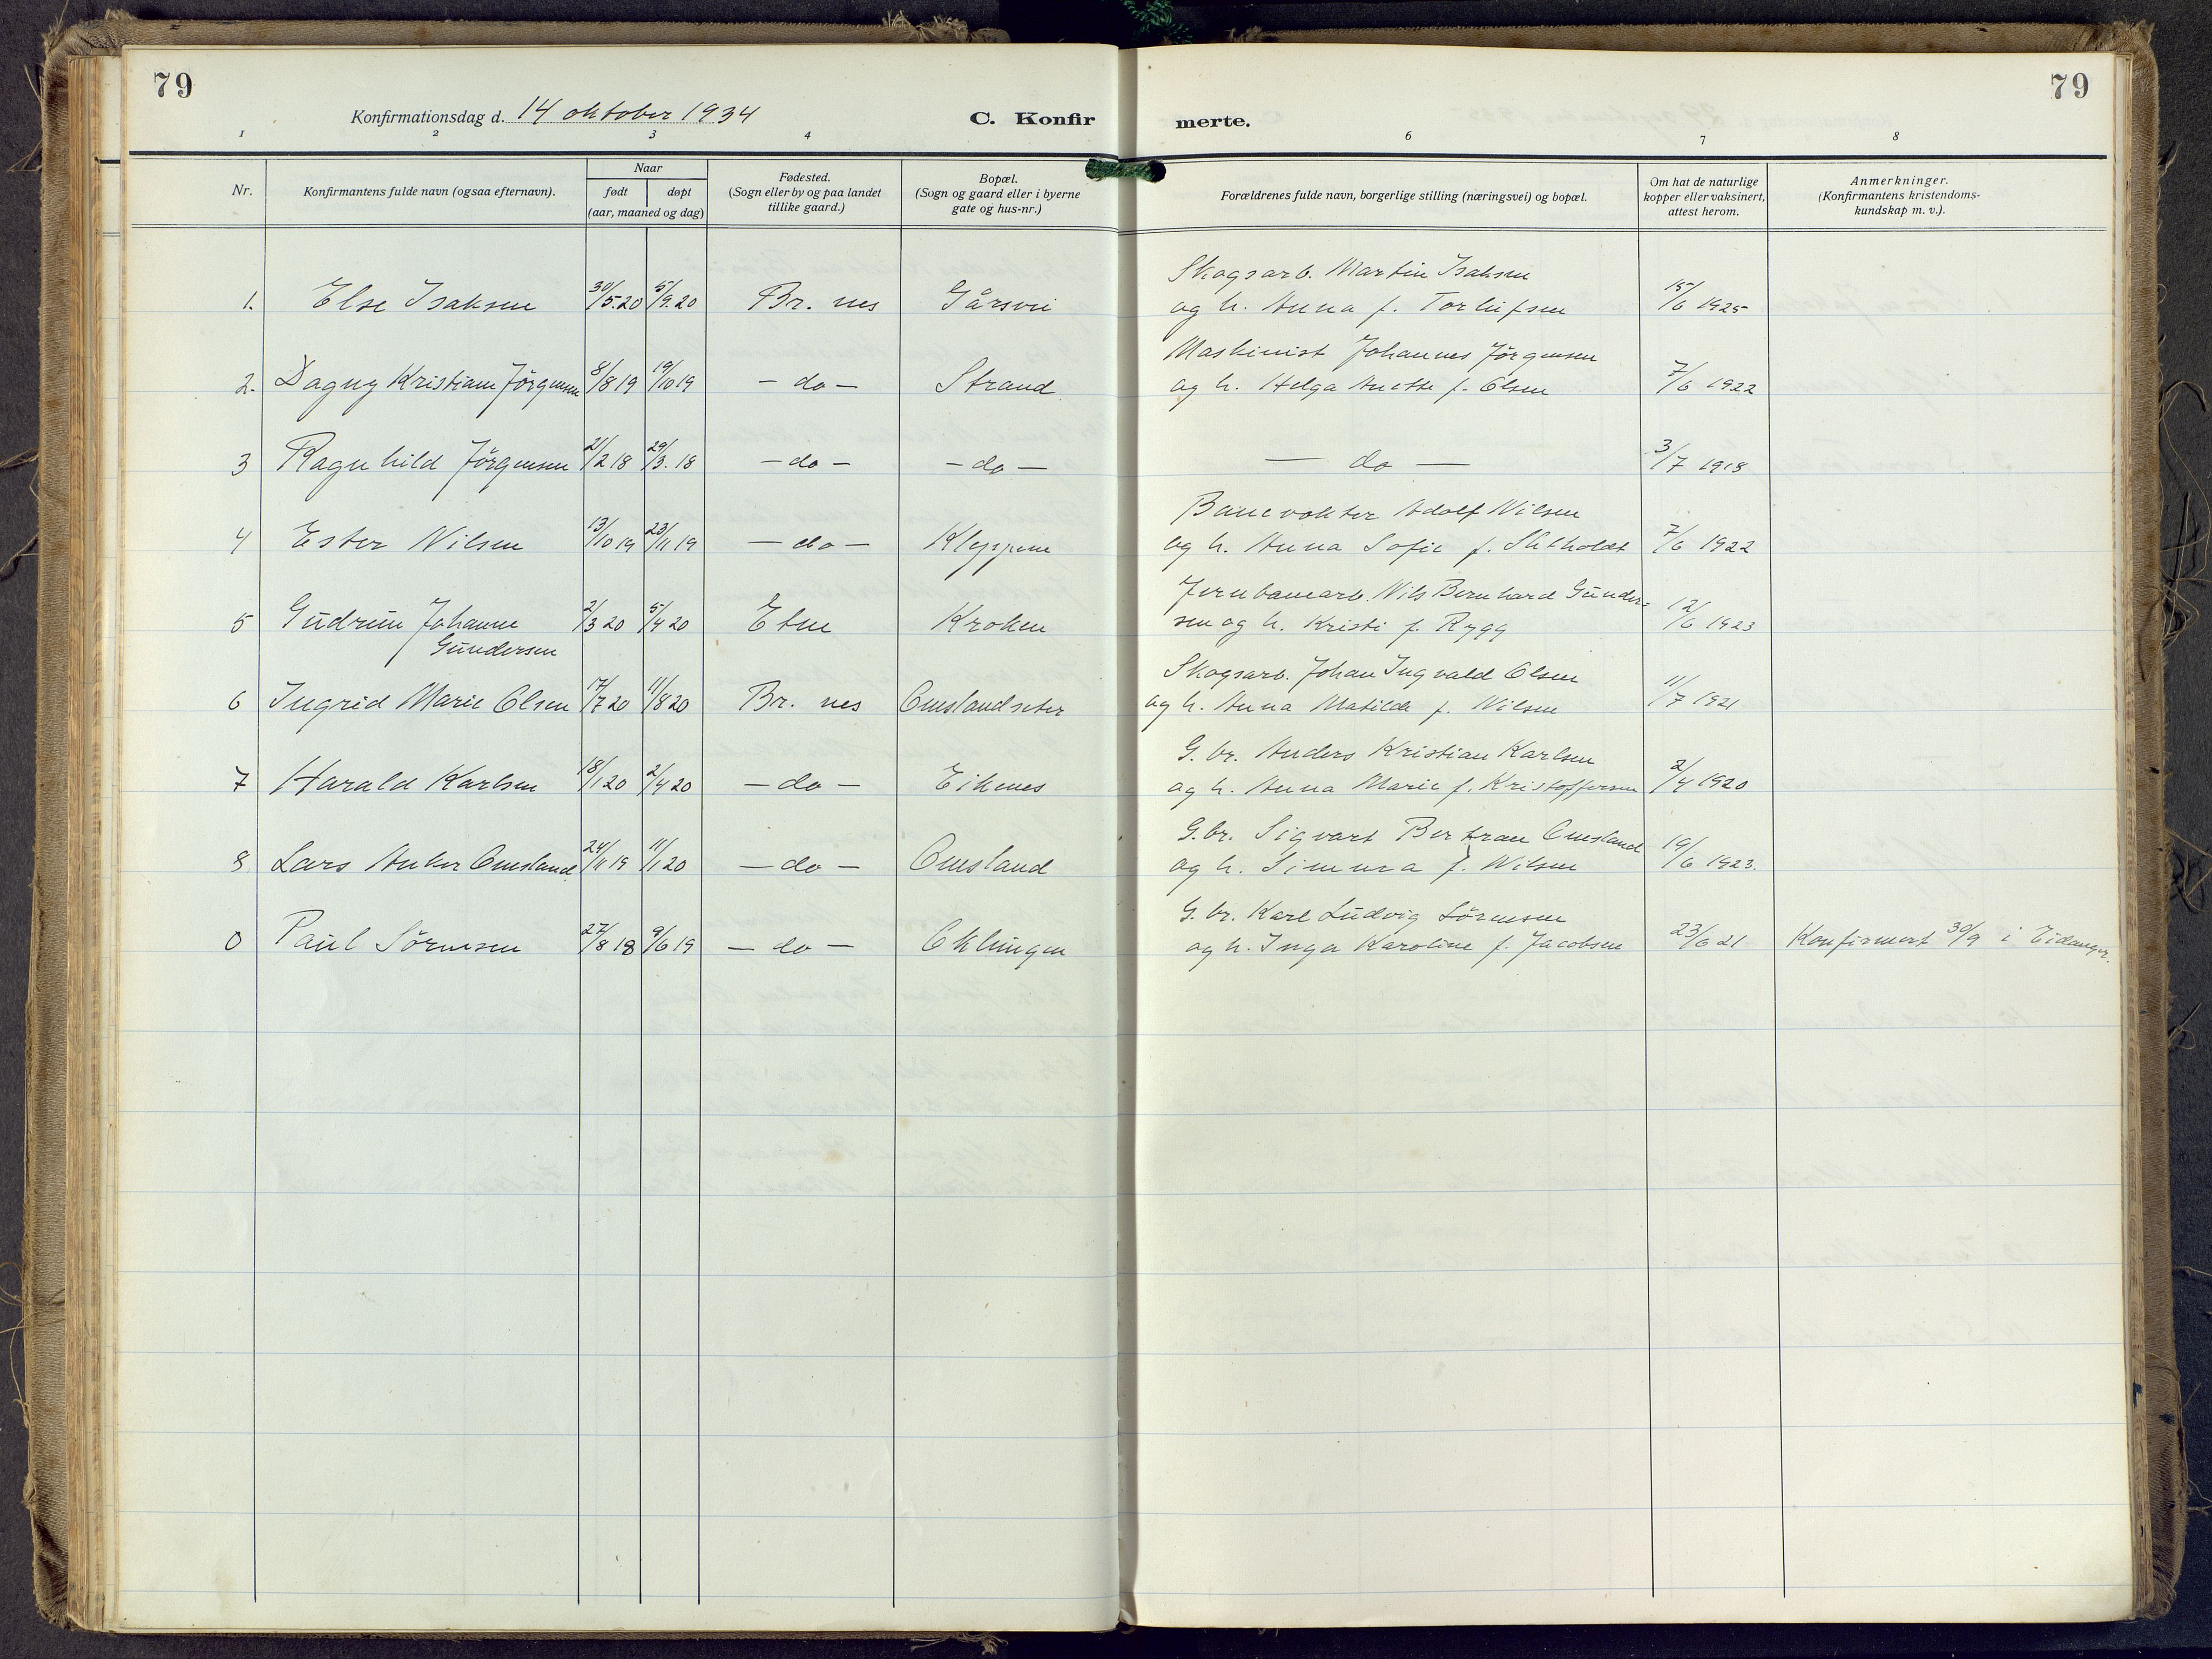 79
79
Konfirmationsdag d. 14 oktober 1934
C. Konfir merte.
1 2 3 4 6 7 8
Nr.
Konfirmantens fulde navn (ogsaa efternavn).
Naar
født døpt
(aar, maaned og dag)
Fødested.
(Sogn eller by og paa landet
tillike gaard.)
Bopæl.
(Sogn og gaard eller i byerne
gate og hus-nr.)
Forældrenes fulde navn, borgerlige stilling (næringsvei) og bopæl.
Om hat de naturlige
kopper eller vaksinert,
attest herom.
Anmerkninger.
(Konfirmantens kristendoms-
kundskap m. v.).
Skogsarb. Martin Isaksen
1. Else Isaksen 30/5.20 5/9.20 Br. nes Gårsvei og h. Anna f. Torleifsen 15/6 1925
Maskinist Johannes Jörgensen
2. Dagny Kristiane Jörgensen 8/8 19 19/10 19 — do — Strand og h. Helga Anette f. Olsen 7/6 1922
3 Ragnhild Jörgensen 21/2 18 29/3. 18 — do — — do — — do — 3/7 1918
Banevokter Adolf Nilsen
4 Ester Nilsen 13/10 19 23/11 19 — do — Kleppene og h. Anna Sofie f. 7/6 1922
Jernbanearb. Nils Bernhard Gunder-
5 Gudrun Johanne 2/3 20 5/4 20 Etne Kroken sen og h. Kristi f. Rygg 12/6 1923
Gundersen
Skogsarb. Johan Ingvald Olsen
6 Ingrid Marie Olsen 17/7 20 11/8 20 Br. nes Omslandseter og h. Anna Matilde f. Nilsen 11/7 1921
G. br. Anders Kristian Karlsen
7 Harald Karlsen 18/1 20 2/4 20 — do — Eiknes og h. Anna Marie f. Kristoffersen 2/4 1920
G. br. Sigvart Bertran Omsland
8 Lars Anker Omsland 24/11 19 11/1 20 — do — Omsland og h. Simmra f. Nilsen 19/6 1923.
G. br. Karl Ludvig Sörensen
0 Paul Sörensen 27/8 18 9/6 19 — do — Oklungen og h. Inga Karoline f. Jacobsen 23/6 21 Konfirmert 30/9 i Eidanger.